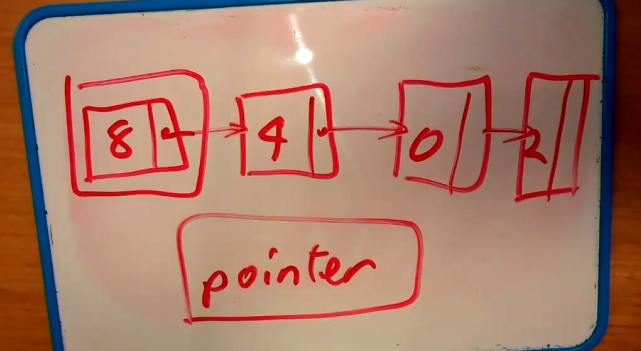 8 4 0 2
pointer